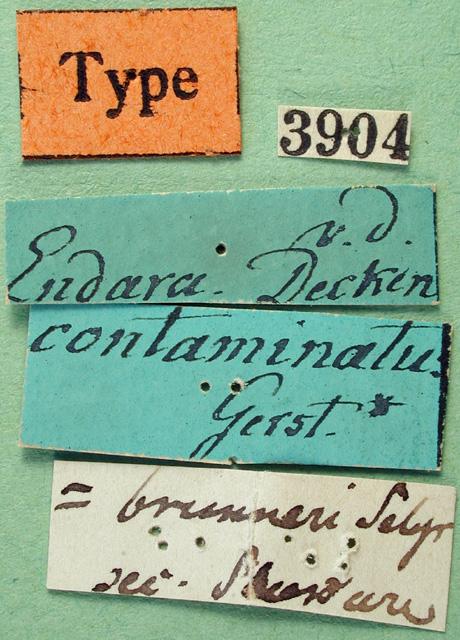 Type
3904
v. d.
Endara. Decken
contaminatus
Gerst.*
= brunneri Selys
sec.